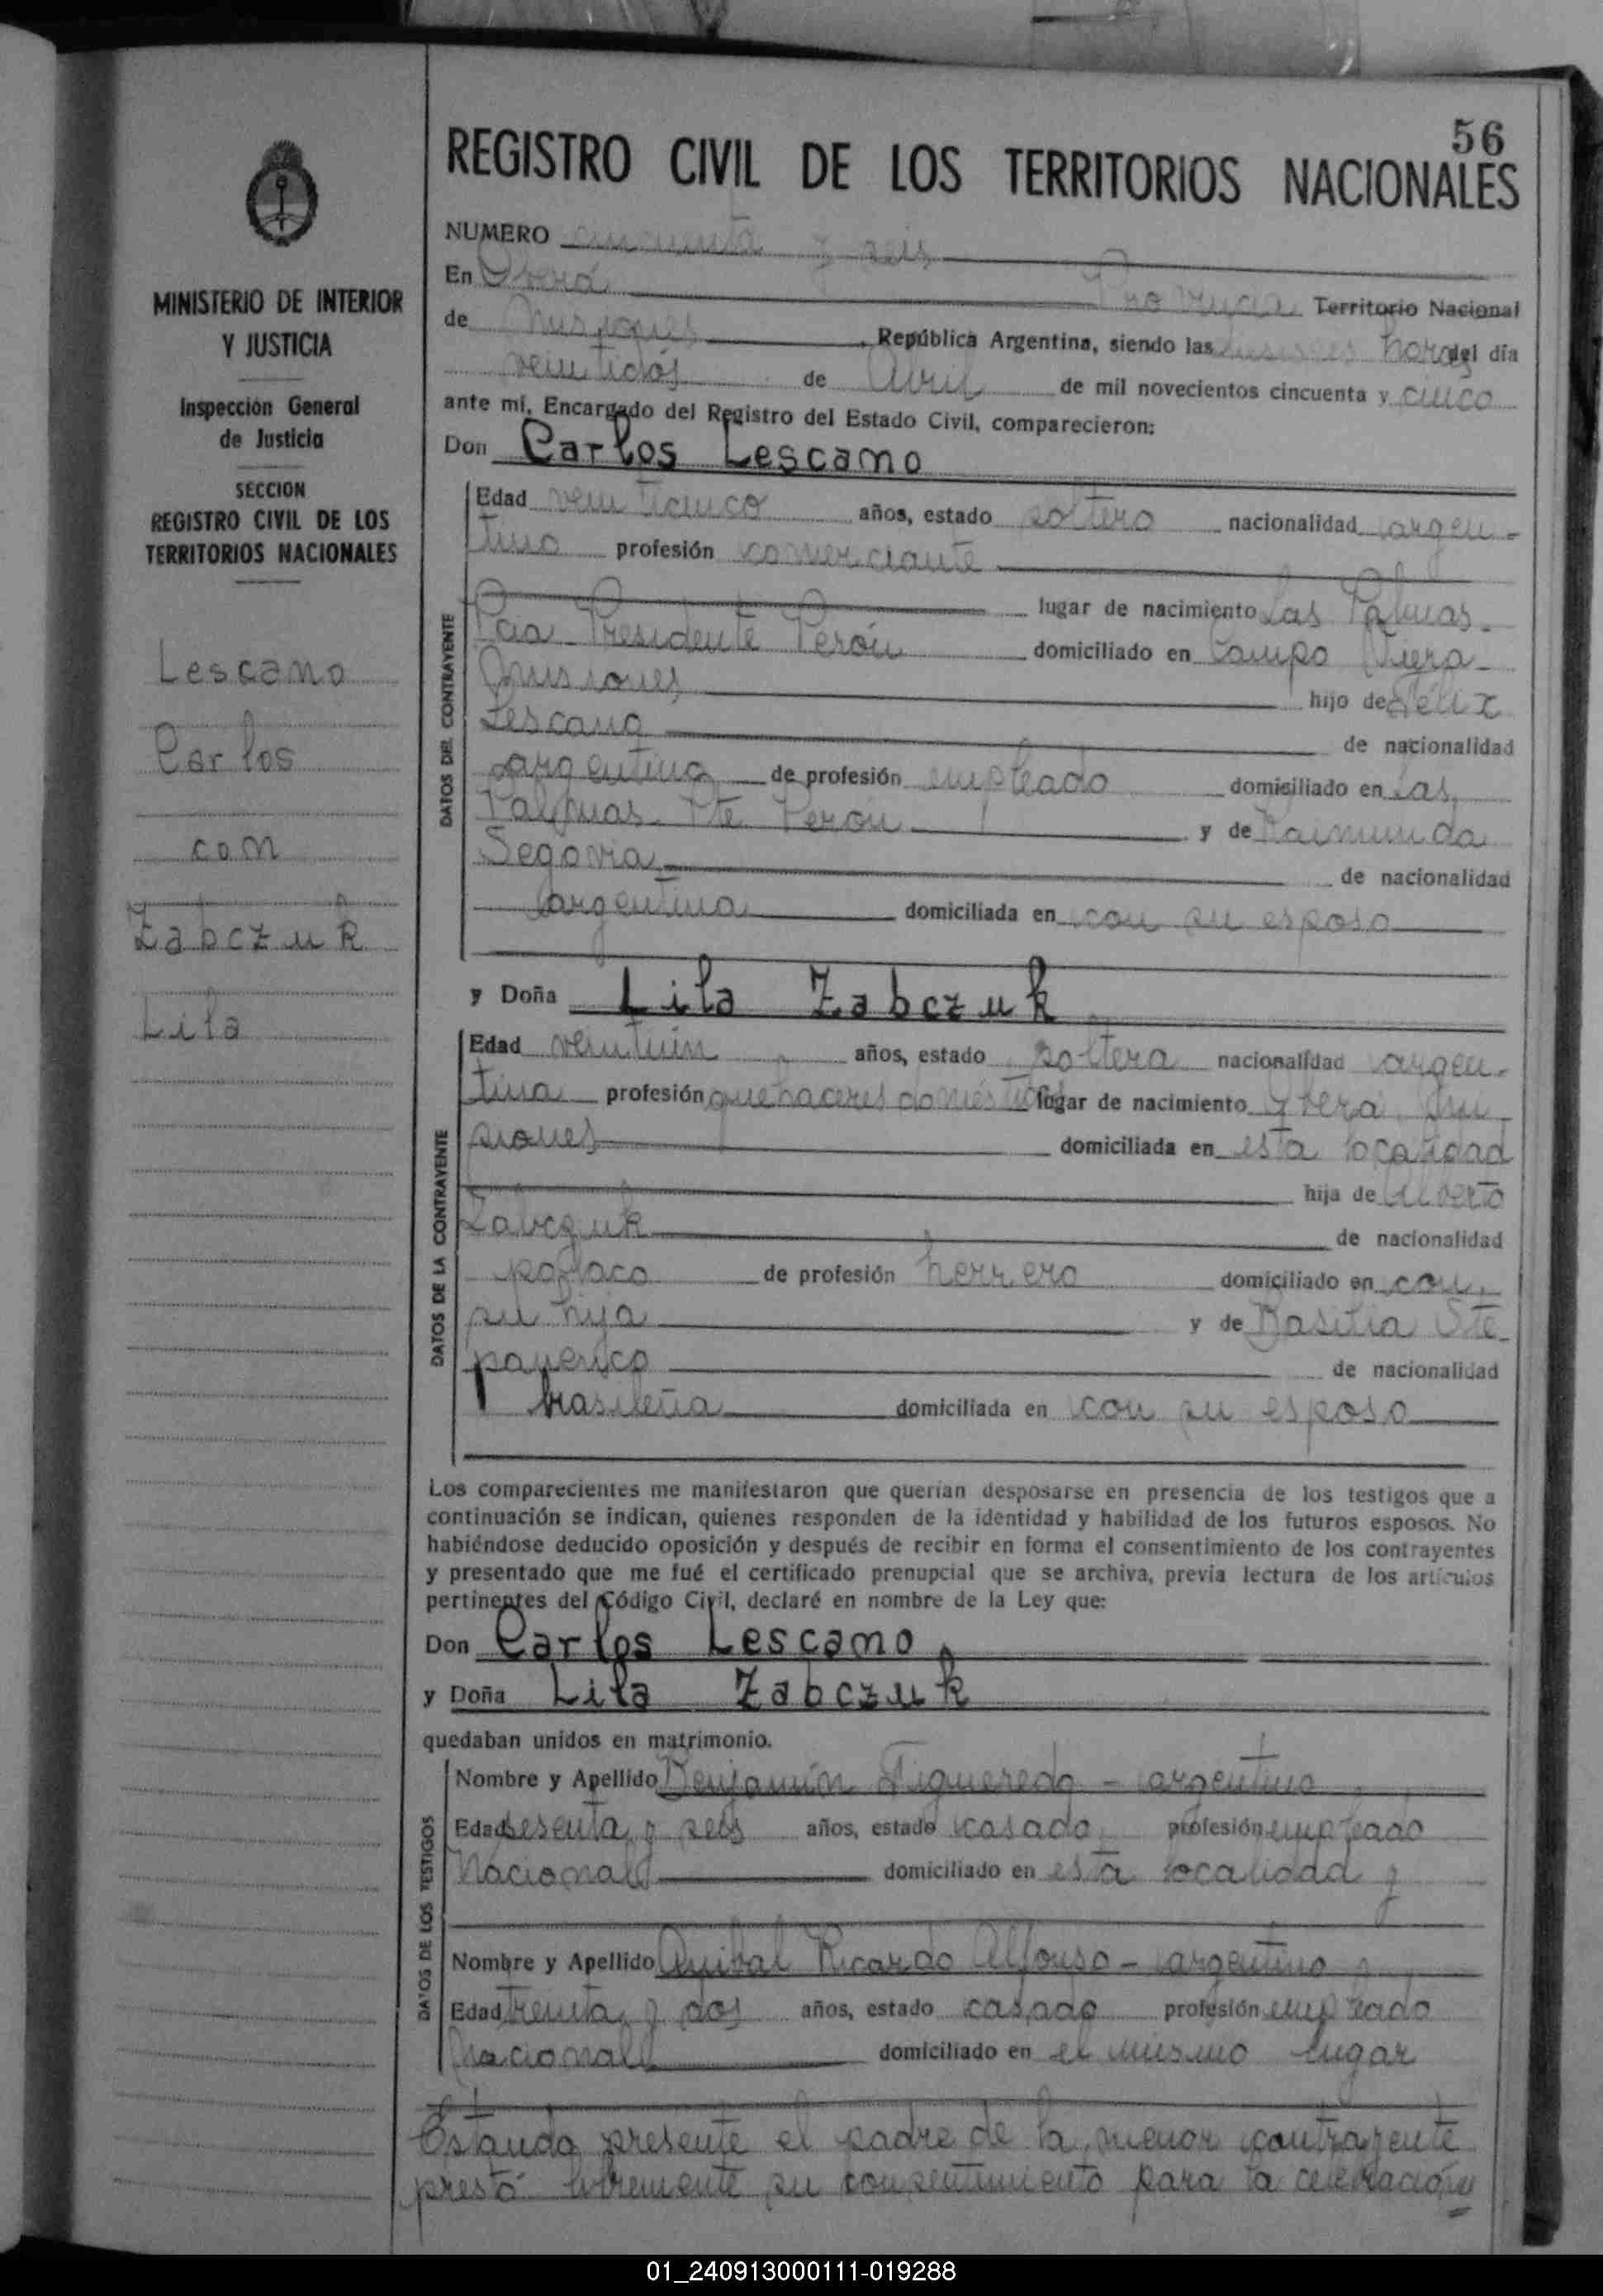 56
REGISTRO CIVIL DE LOS TERRITORIOS NACIONALES
MINISTERIO DE INTERIOR
Y JUSTICIA
Inspección General
de Justicia
SECCION
REGISTRO CIVIL DE LOS
TERRITORIOS NACIONALES
Lescano
Carlos
con
Zabczuk
Lila
NUMERO cincuenta y seis
En Oberá Provincia Territorio Nacional
de Misiones República Argentina, siendo las horas del día
veintidós de Abril de mil novecientos cincuenta y cinco
ante mí, Encargado del Registro del Estado Civil, comparecieron:
Don Carlos Lescano
DATOS DEL CONTRAYENTE
Edad veinticinco años, estado soltero nacionalidad argen-
tino profesión comerciante
lugar de nacimiento Las Palmas-
Pcia Presidente Perón domiciliado en Campo Viera-
Misiones hijo de Félix
Lescano de nacionalidad
argentina de profesión empleado domiciliado en Las
Palmas-Pte Perón y de Raimunda
Segovia de nacionalidad
argentina domiciliada en con su esposo
y Doña Lila Zabczuk
DATOS DE LA CONTRAYENTE
Edad veintiún años, estado soltera nacionalidad argen-
tina profesión quehaceres domésticos lugar de nacimiento Mi
siones domiciliada en esta localidad
hija de Alberto
Zabczuk de nacionalidad
polaco de profesión herrero domiciliado en con
su hija y de Basilia Ste
panenco de nacionalidad
brasileña domiciliada en con su esposo
Los comparecientes me manifestaron que querían desposarse en presencia de los testigos que a
continuación se indican, quienes responden de la identidad y habilidad de los futuros esposos. No
habiéndose deducido oposición y después de recibir en forma el consentimiento de los contrayentes
y presentado que me fué el certificado prenupcial que se archiva, previa lectura de los artículos
pertinentes del Código Civil, declaré en nombre de la Ley que:
Don Carlos Lescano
y Doña Lila Zabczuk
quedaban unidos en matrimonio.
DATOS DE LOS TESTIGOS
Nombre y Apellido Benjamín Figueredo - argentino
Edad sesenta y seis años, estado casado profesión empleado
Nacional domiciliado en esta localidad y
Nombre y Apellido Anibal Ricardo Alfonso - argentino
Edad treinta y dos años, estado casado profesión empleado
Nacional domiciliado en el mismo lugar
Estando presente el padre de la menor contrayente
prestó libremente su consentimiento para la celebración
01_240913000111-019288